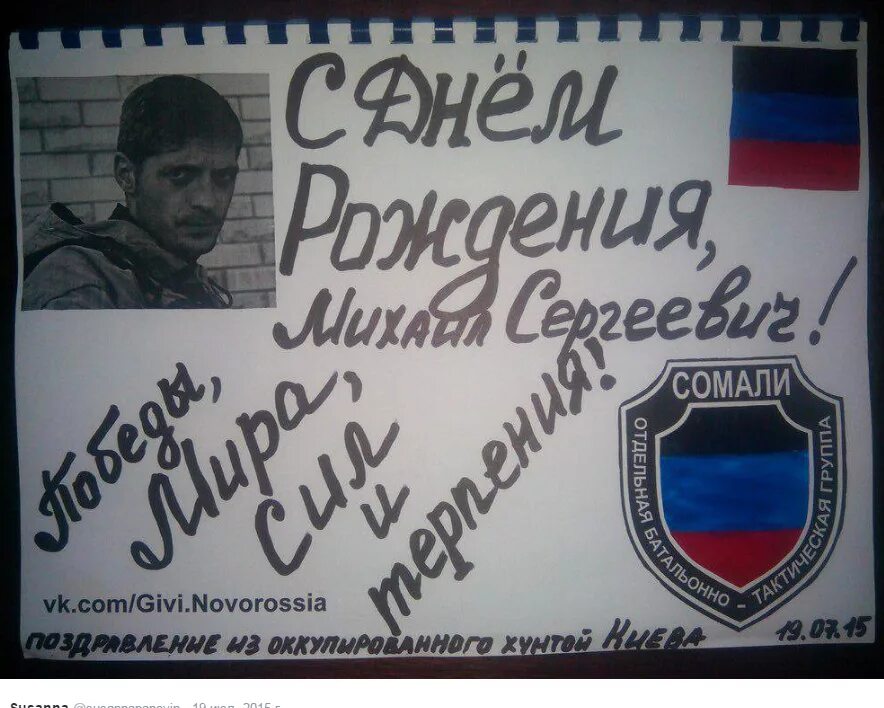 С Днём
Рождения,
Михаил Сергеевич!
Победы,
Мира,
Сил
и
терпения!
СОМАЛИ
ОТДЕЛЬНАЯ БАТАЛЬОННО - ТАКТИЧЕСКАЯ ГРУППА
vk.com/Givi.Novorossia
ПОЗДРАВЛЕНИЕ ИЗ ОККУПИРОВАННОГО ХУНТОЙ КИЕВА
19.07.15
Susanna